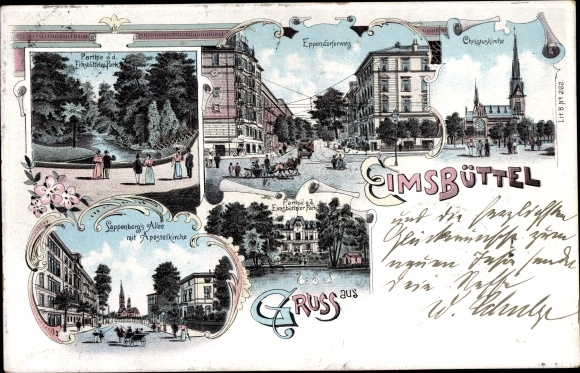 Parthie a.d.
Eimsbütteler Park
Eppendorferweg
Christuskirche
Lit. B. No. 262
EIMSBÜTTEL
Lappenberg's Allee
mit Apostelkirche
Parthie a.d.
Eimsbütteler Park
GRUSS aus
und die herzlichsten
Glückwünsche zum
neuen Jahr sendet
W.